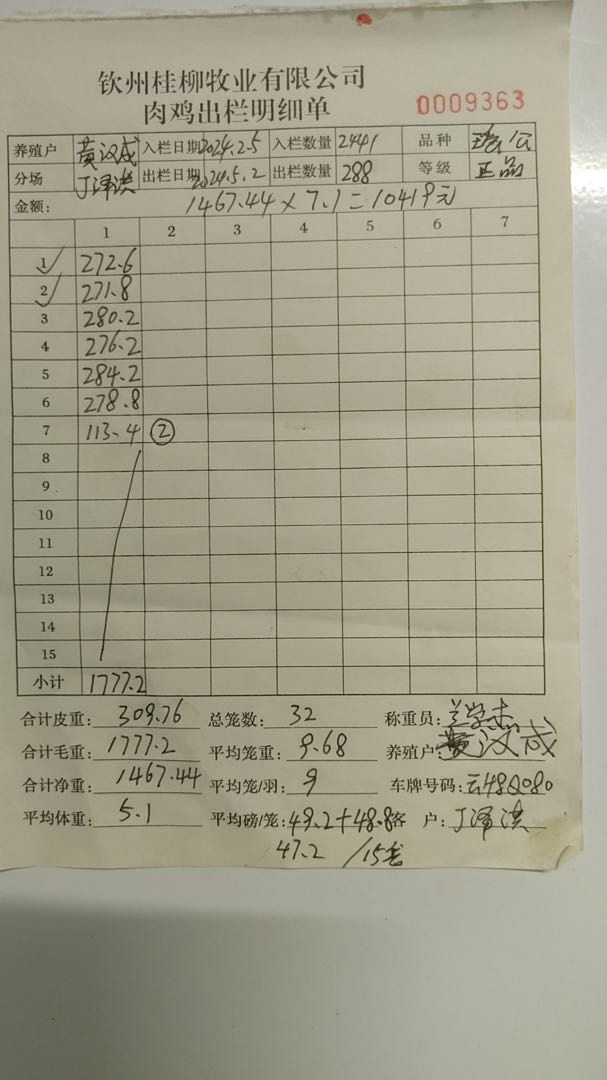 钦州桂柳牧业有限公司
肉鸡出栏明细单
0009363
养殖户 黄汉成 入栏日期 2024.2.5 入栏数量 2441 品种
分场 丁泽洪 出栏日期 2024.5.2 出栏数量 288 等级 正品
金额: 1467.44×7.1=10419元
1 2 3 4 5 6 7
1 272.6
2 271.8
3 280.2
4 276.2
5 284.2
6 278.8
7 113.4 ②
8
9
10
11
12
13
14
15
小计 1777.2
合计皮重: 309.76 总笼数: 32 称重员: 兰学杰
合计毛重: 1777.2 平均笼重: 9.68 养殖户: 黄汉成
合计净重: 1467.44 平均笼/羽: 9 车牌号码: 云48Q080
平均体重: 5.1 平均磅/笼: 49.2+48.8 客 户: 丁泽洪
47.2 /15